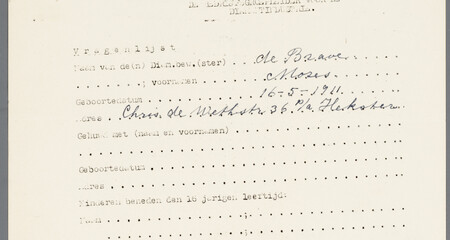 DIENSTINDEELING.
Vragenlijst
Naam van de(n) Dien.bew.(ster) ... de Brave
; voornamen ... Mozes
Geboortedatum ... 16-5-1911
Adres . Chris. de Wethstr 36 P/a
Gehuwd met (naam en voornamen)
Geboortedatum
Adres
Kinderen beneden den 16 jarigen leeftijd:
Naam ;
;